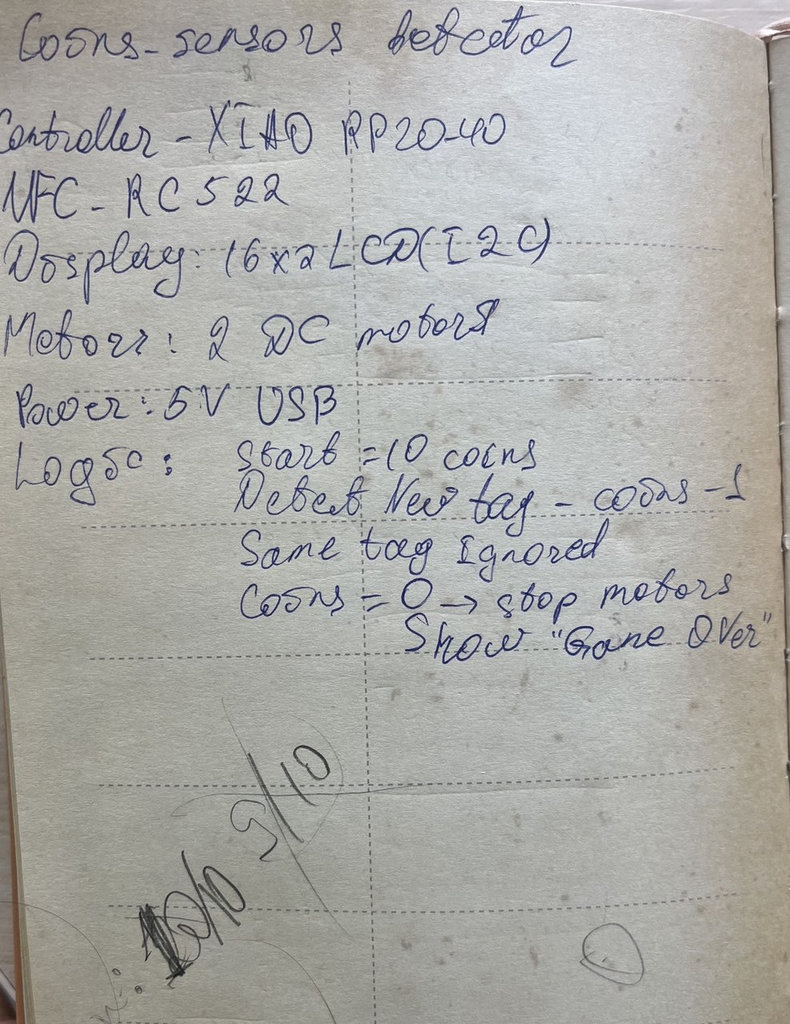 Coins-sensors detector
Controller - XIAO RP20-40
NFC - RC522
Display: 16x2 LCD(I2C)
Motors: 2 DC motors
Power: 5V USB
Logic: Start = 10 coins
Detect New tag - coins -1
Same tag Ignored
Coins = 0 → stop motors
Show "Game Over"
9/10
10/10